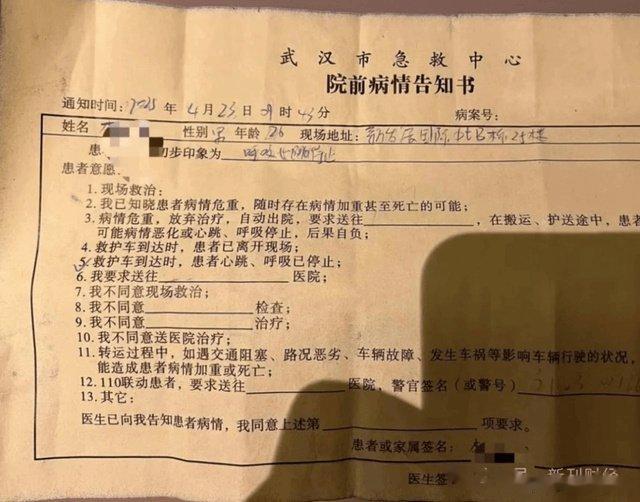 武汉市急救中心
院前病情告知书
通知时间：2025年4月23日 时43分 病案号：
姓名 性别 男 年龄 26 现场地址： 国际 栋25楼
患 初步印象为 呼吸心跳停止
患者意愿
1. 现场救治；
2. 我已知晓患者病情危重，随时存在病情加重甚至死亡的可能；
3. 病情危重，放弃治疗，自动出院，要求送往 ，在搬运、护送途中，患者
可能病情恶化或心跳、呼吸停止，后果自负；
4. 救护车到达时，患者已离开现场；
5. 救护车到达时，患者心跳、呼吸已停止；
6. 我要求送往 医院；
7. 我不同意现场救治；
8. 我不同意 检查；
9. 我不同意 治疗；
10. 我不同意送医院治疗；
11. 转运过程中，如遇交通阻塞、路况恶劣、车辆故障、发生车祸等影响车辆行驶的状况，
能造成患者病情加重或死亡；
12. 110联动患者，要求送往 医院，警官签名（或警号）
13. 其它：
医生已向我告知患者病情，我同意上述第 项要求。
患者或家属签名：
医生签
新刊财经